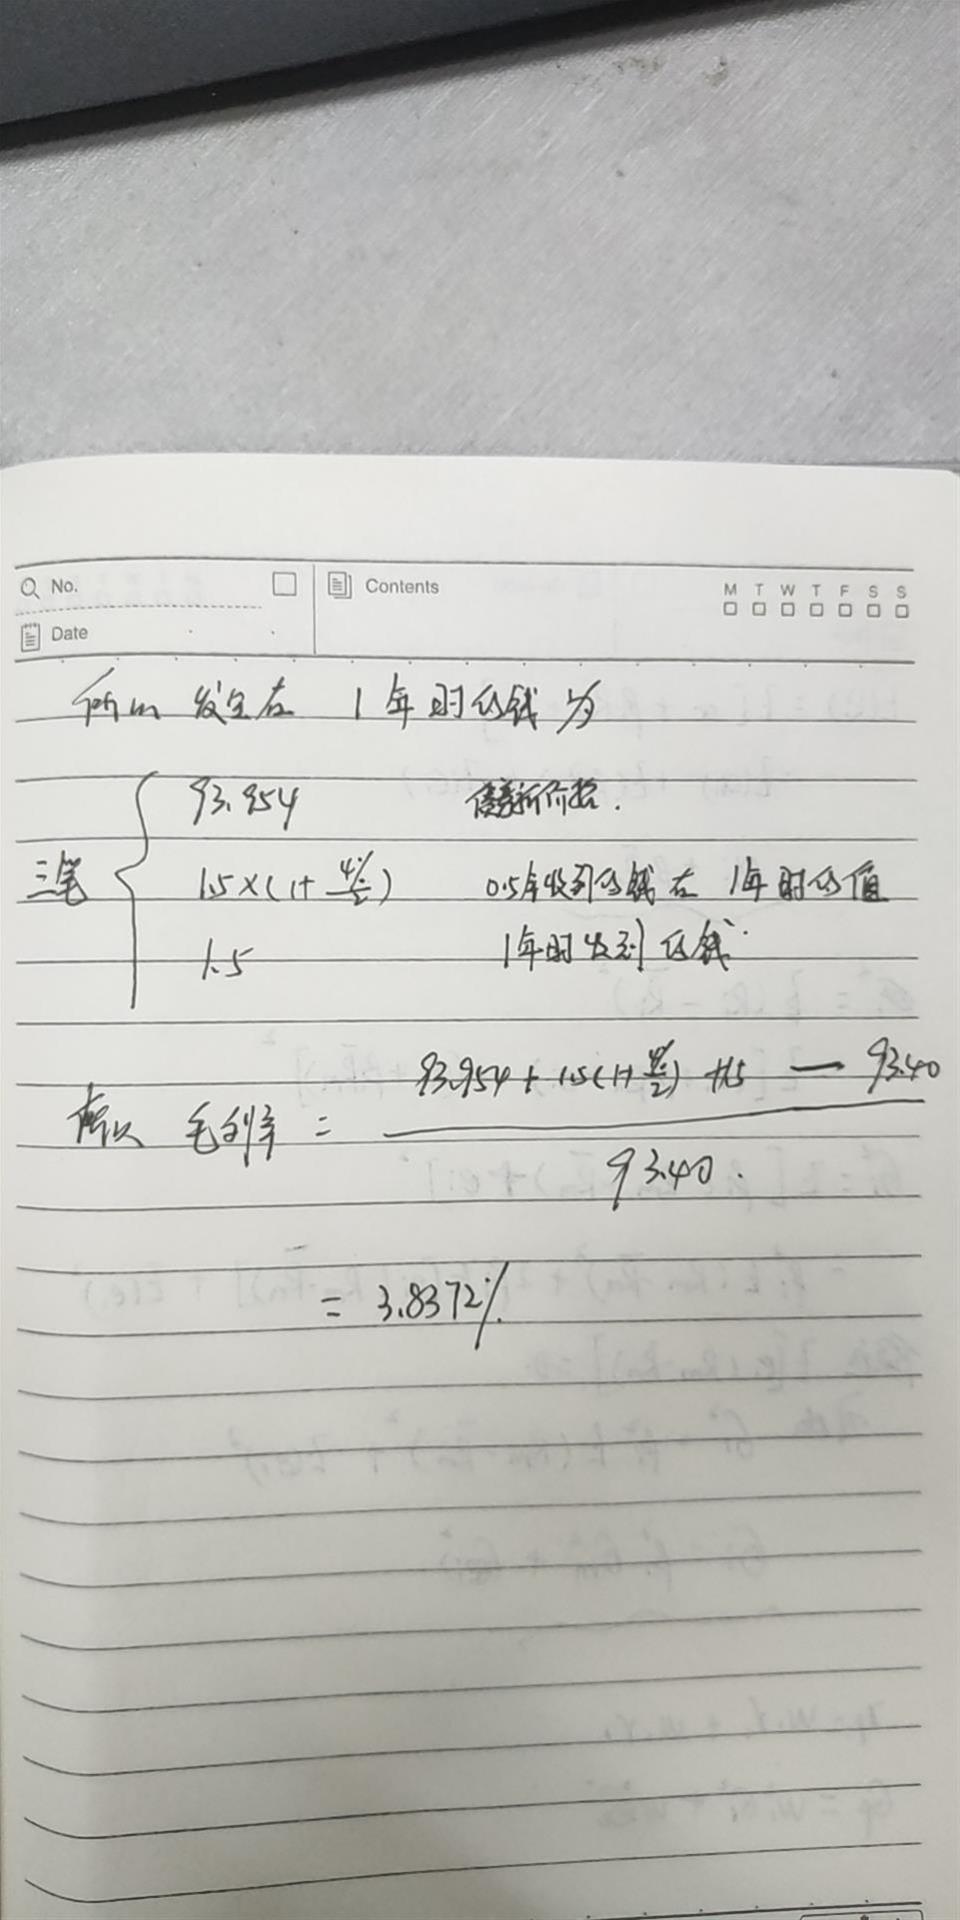 No.
Contents
M T W T F S S
Date
所以 发生在 1年时的钱为
三笔
93.954 债券新价格.
1.5×(1+4%/2) 0.5年收到的钱在 1年时的值
1.5 1年时收到的钱.
所以 毛利率 = 93.954+1.5(1+4%/2)+1.5 — 93.40
93.40.
= 3.8372%